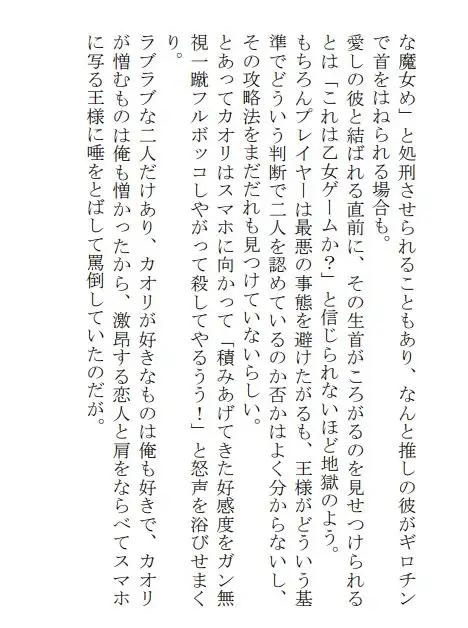 な魔女め」と処刑させられることもあり、なんと推しの彼がギロチン
で首をはねられる場合も。
愛しの彼と結ばれる直前に、その生首がころがるのを見せつけられる
とは「これは乙女ゲームか？」と信じられないほど地獄のよう。
もちろんプレイヤーは最悪の事態を避けたがるも、王様がどういう基
準でどういう判断で二人を認めているのか否かはよく分からないし、
その攻略法をまだだれも見つけていないらしい。
とあってカオリはスマホに向かって「積みあげてきた好感度をガン無
視一蹴フルボッコしやがって殺してやるうう！」と怒声を浴びせまく
り。
ラブラブな二人だけあり、カオリが好きなものは俺も好きで、カオリ
が憎むものは俺も憎かったから、激昂する恋人と肩をならべてスマホ
に写る王様に唾をとばして罵倒していたのだが。